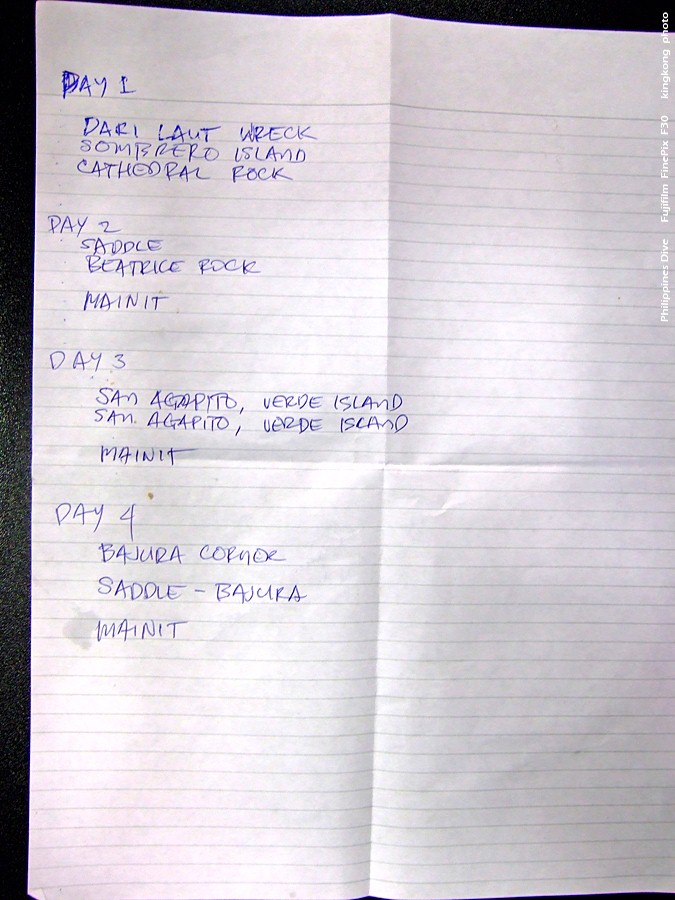 DAY 1
DARI LAUT WRECK
SOMBRERO ISLAND
CATHEDRAL ROCK
DAY 2
SADDLE
BEATRICE ROCK
MAINIT
DAY 3
SAN AGAPITO, VERDE ISLAND
SAN AGAPITO, VERDE ISLAND
MAINIT
DAY 4
BAJURA CORNER
SADDLE - BAJURA
MAINIT
Philippines Dive Fujifilm FinePix F30 kingkong photo